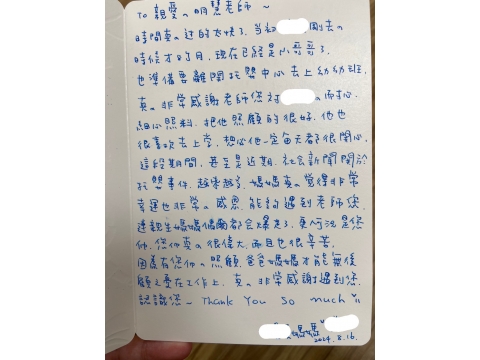 To 親愛の明慧老師~
時間真の過的太快了,當初 剛去の
時候才 月,現在已經是小哥哥了,
也準備要離開托嬰中心去上幼幼班,
真の非常感謝老師您對 の耐心
細心照料,把他照顧的很好,他也
很喜歡去上學,想必他一定每天都很開心,
這段期間,甚至是近期,社會新聞關於
托嬰事件,越來越多,媽媽真の覺得非常
幸運也非常の感恩,能夠遇到老師您,
連親生媽媽偶爾都會爆走了,更何況是您
們,您們真の很偉大,而且也很辛苦,
因為有您們の照顧,爸爸媽媽才能無後
顧之憂在工作上,真の非常感謝遇到您,
認識您~Thank You so much
2024.8.16.